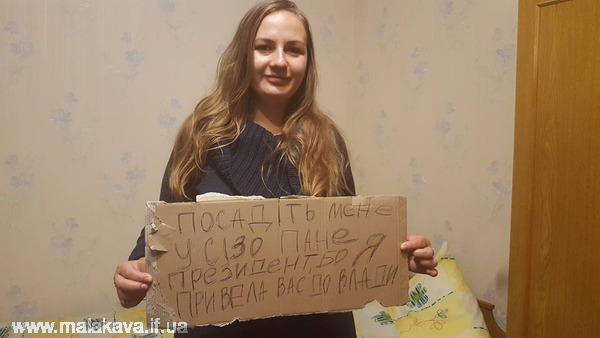 ПОСАДІТЬ МЕНЕ
У СІЗО ПАНЕ
ПРЕЗИДЕНТЕ БО Я
ПРИВЕЛА ВАС ДО ВЛАДИ
www.malakava.if.ua